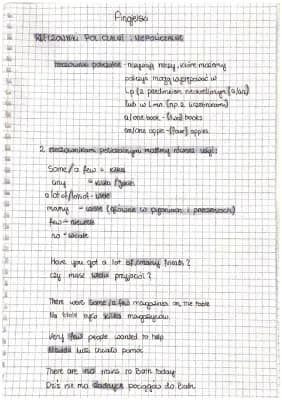 RZECZOWNIKI POLICZALNE I NIEPOLICZALNE
rzeczowniki policzalne - nazywają rzeczy, które możemy
policzyć mogą występować w
Lp (z przedimkiem nieokreślonym (a/an)
lub w Lmn. (np. z liczebnikami)
a/one book - (two) books
an/one apple - (four) apples
2. rzeczownikami policzalnymi możemy również użyć:
some/a few = kilka
any
a lot of/lots of - wiele
many = wiele (głównie w pytaniach i przeczeniach)
few = niewiele
no = wcale
Have you got a lot of/many friends?
czy masz wielu przyjaciół?
There were some/a few magazines on the table
Na stole było kilka magazynów.
Very few people wanted to help
ludzi chciało pomóc
There are no trains to Bath today
Dziś nie ma żadnych pociągów do Bath.